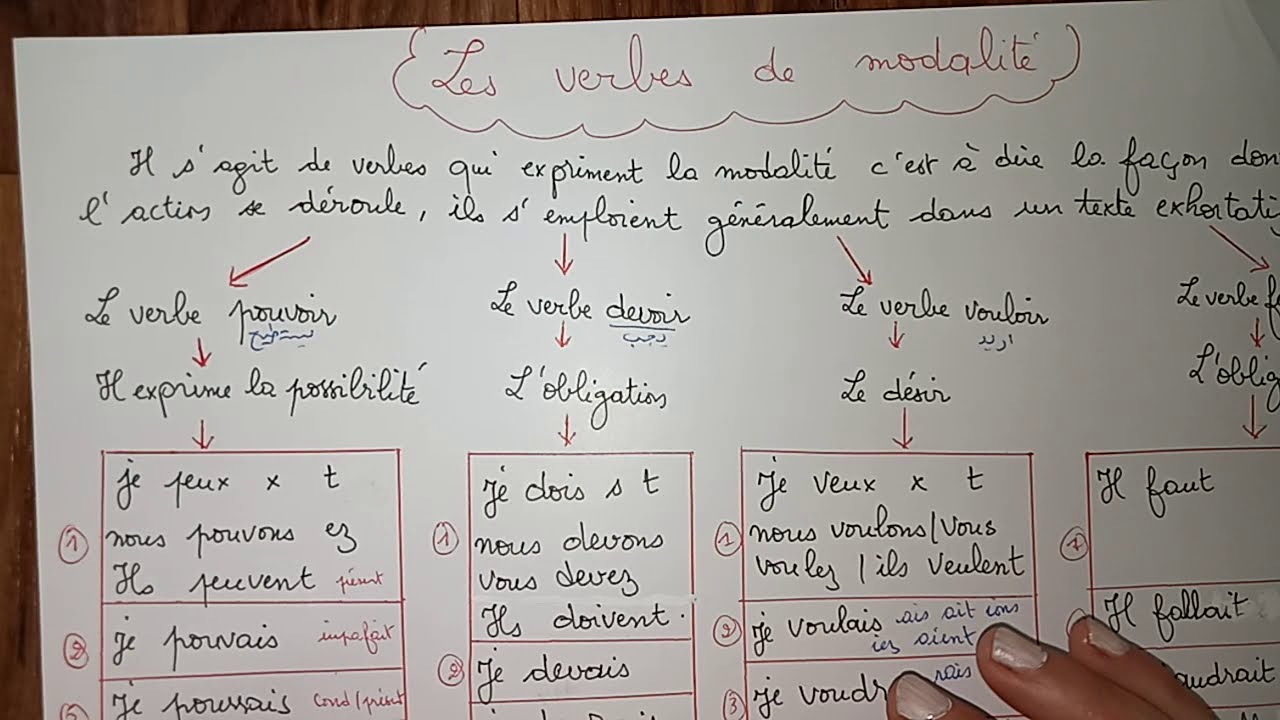 Les verbes de modalité
Il s'agit de verbes qui expriment la modalité c'est à dire la façon don
l'action se déroule, ils s'emploient généralement dans un texte exhortati
Le verbe pouvoir
يستطيع
Il exprime la possibilité
je peux x t
① nous pouvons ez
Ils peuvent présent
② je pouvais imparfait
je pourrais cond/présent
Le verbe devoir
يجب
L'obligation
je dois s t
① nous devons
vous devez
Ils doivent.
② je devais
Le verbe vouloir
اريد
Le désir
Je veux x t
① nous voulons/vous
voulez / ils veulent
② je voulais ais ait ions
iez aient
③ je voudr rais
Le verbe f
L'oblig
① Il faut
Il fallait
audrait